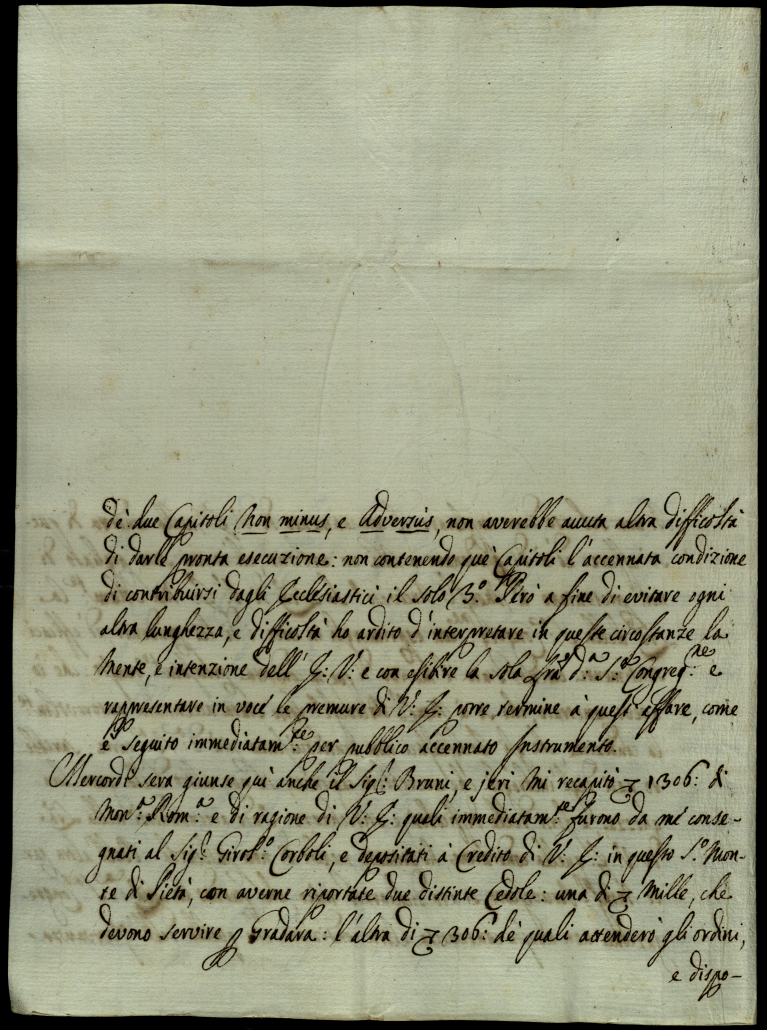 de' due Capitoli Non minus, e Adversus, non averebbe avuta altra difficoltà
di darle pronta esecuzione: non contenendo que' Capitoli l'accennata condizione
di contribuirsi dagli Ecclesiastici il solo 3.° Però a fine di evitare ogni
altra lunghezza, e difficoltà ho ardito d'interpretare in queste circostanze la
Mente, e intenzione dell' E: V: e con esibire la sola d.ª S. Congreg.ne e
rappresentare in voce le premure di V: E: porre termine à quest' affare, come
è seguito immediatam.te per pubblico accennato Instrumento.
Mercordi sera giunse quì anche il Sig.r Bruni, e jeri mi recapitò 1306: di
Mon.ª Rom.ª e di ragione di V: E: quali immediatam.te furono da mé conse-
gnati al Sig.r Girol.° Corboli, e depositati à Credito di V: E: in questo S.° Mon-
te di Pietà, con averne riportate due distinte Cedole: una di Mille, che
devono servire p Gradara: l'altra di 306: de' quali attenderò gli ordini,
e dispo-